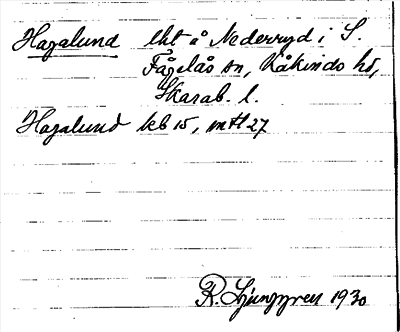 Hagalund lht å Nederryd i S.
Fågelås sn, Kåkinds hd,
Skarab. l.
Hagalund kb 15, mtl 27
R. Ljunggren 1930